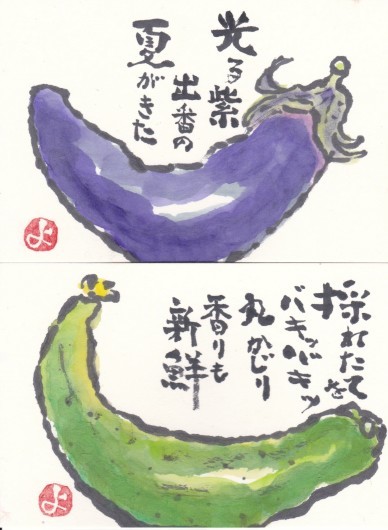 光る紫
出番の
夏がきた
よ
採れたてを
バキッバキッ
丸かじり
香りも
新鮮
よ